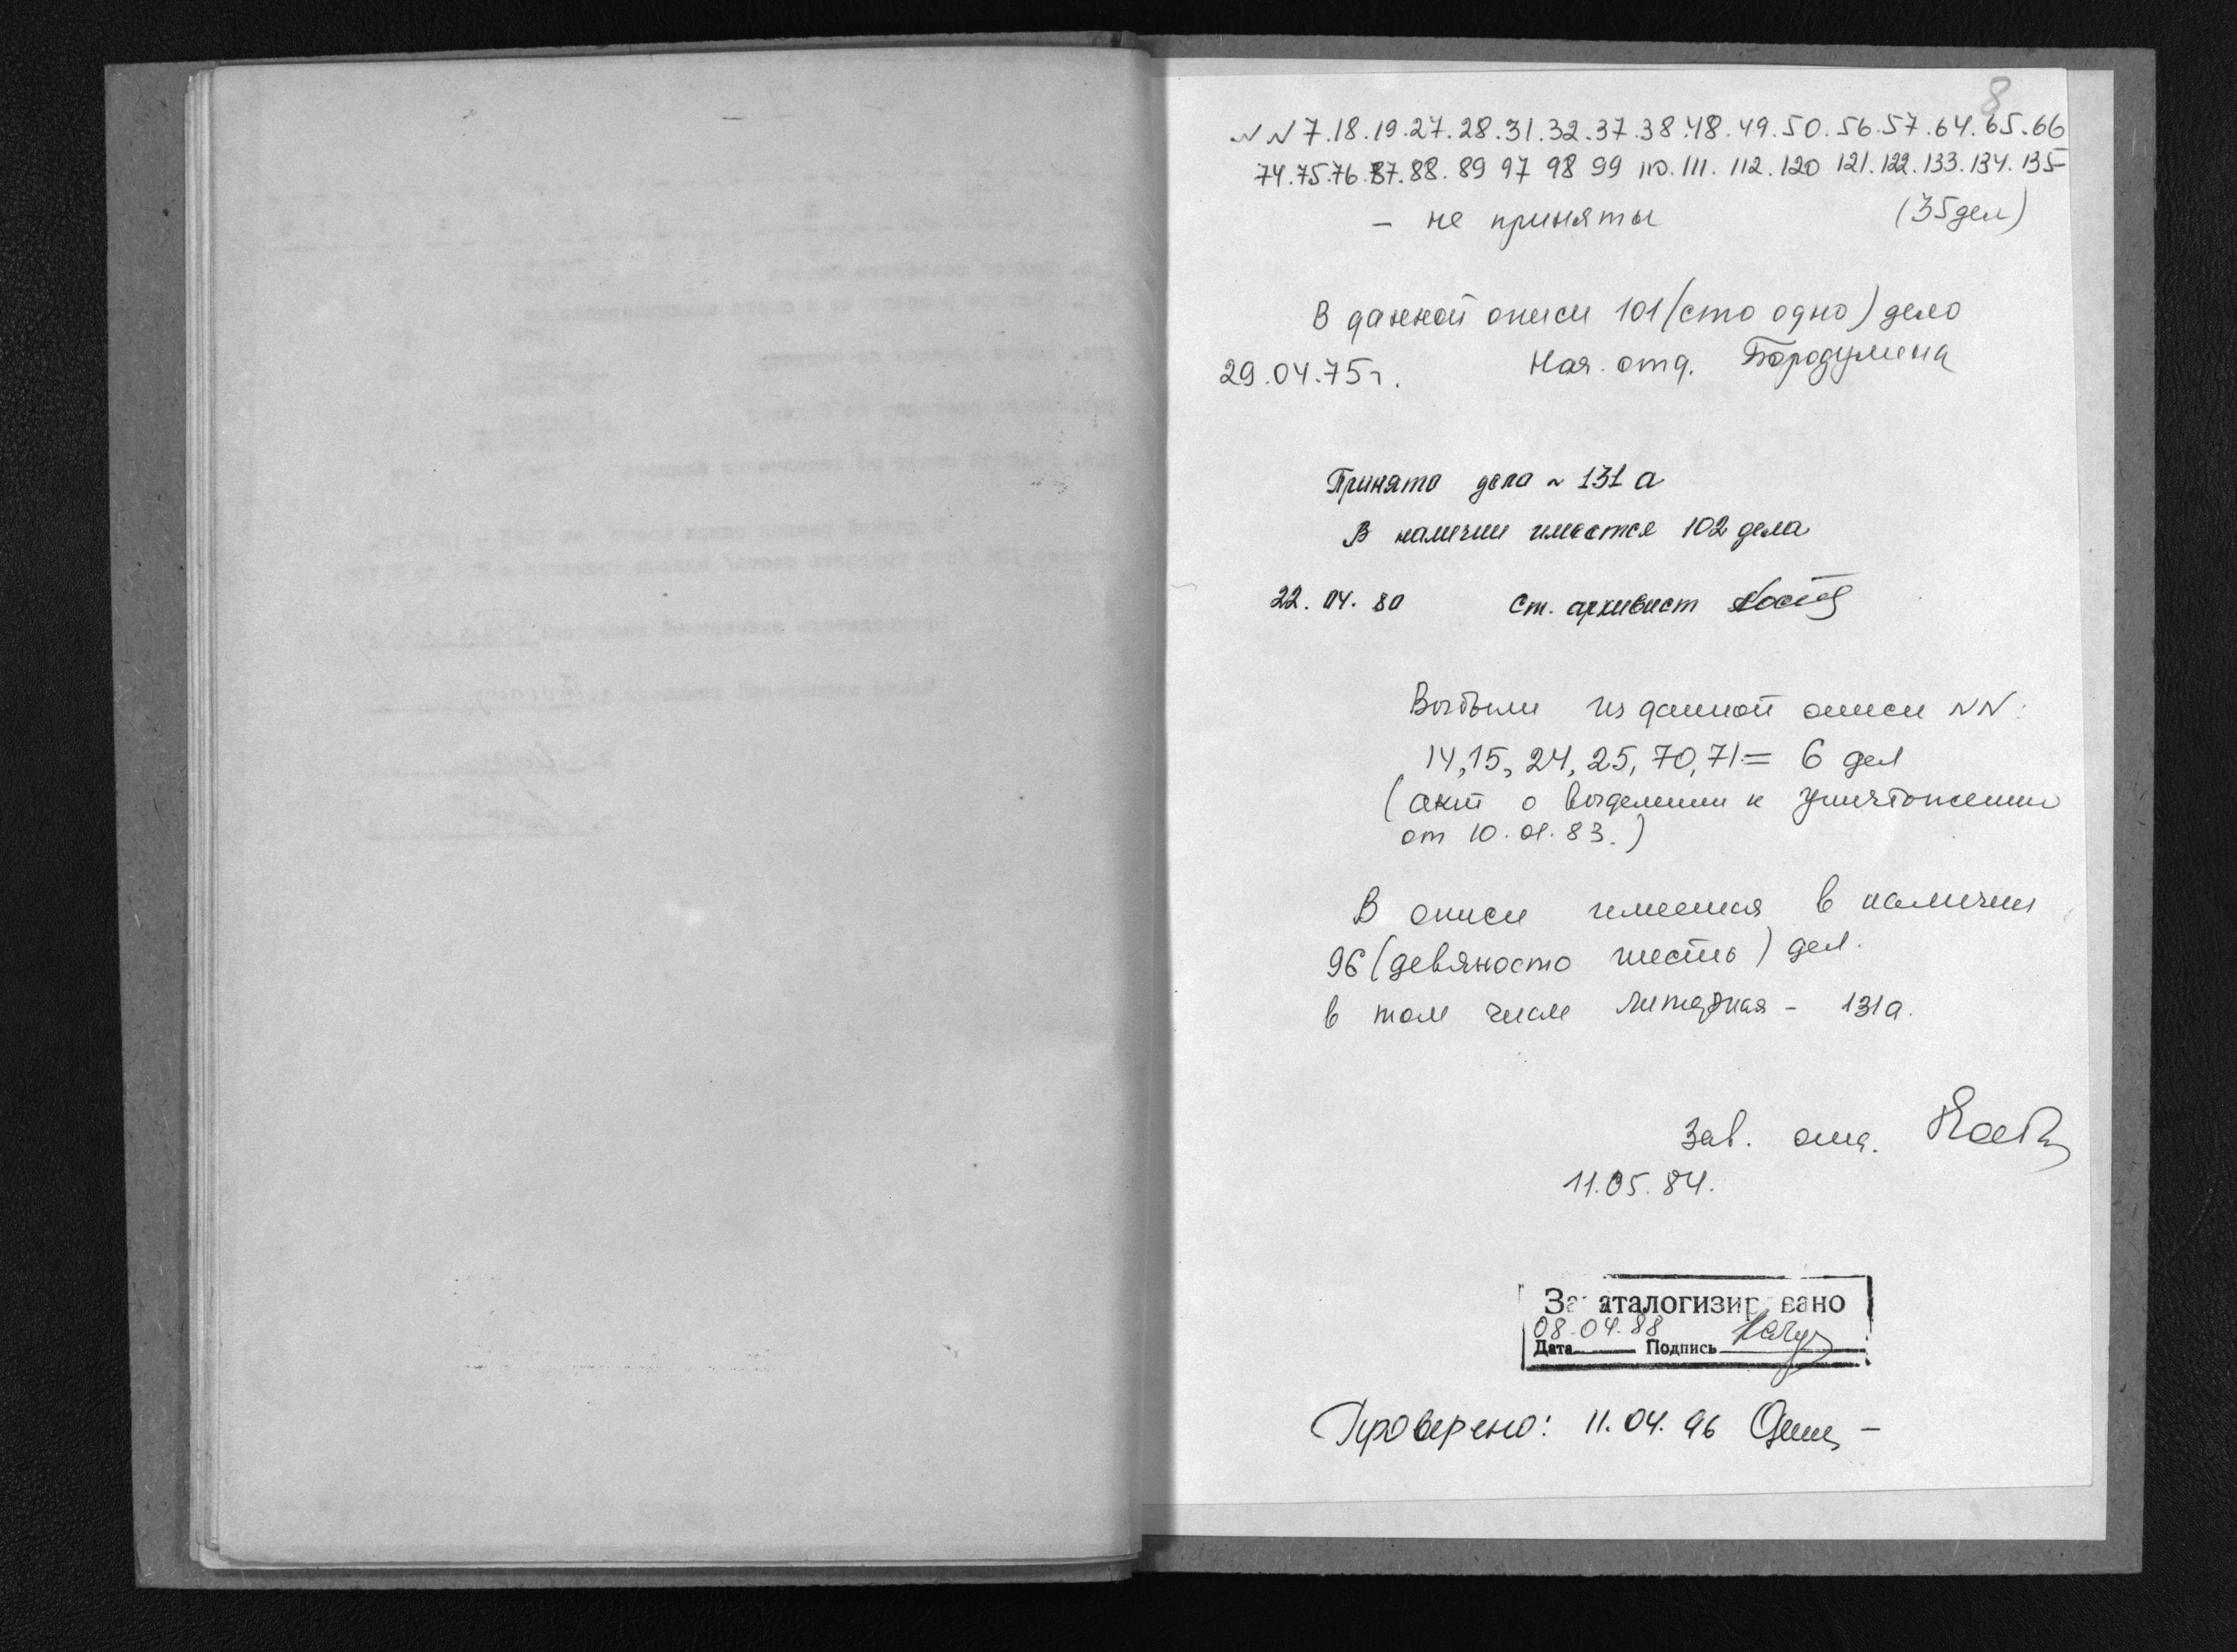 8
NN 7.18.19.27.28.31.32.37.38.48.49.50.56.57.64.65.66
74.75.76.87.88.89 97 98 99 110.111.112.120 121.122.133.134.135
- не приняты (35 дел)
В данной описи 101 (сто одно) дело
29.04.75 г. Нач. отд. Бородулина
Принято дело N 131 а
В наличии имеется 102 дела
22.04.80 Ст. архивист
Выбыли из данной описи NN:
14,15, 24, 25, 70, 71 = 6 дел
(акт о выделении к уничтожению
от 10.01.83.)
В описи имеется в наличии
96 (девяносто шесть) дел.
в том числе литерная - 131а.
Зав. отд.
11.05.84.
Закаталогизировано
08.04.88
Дата Подпись
Проверено: 11.04.96